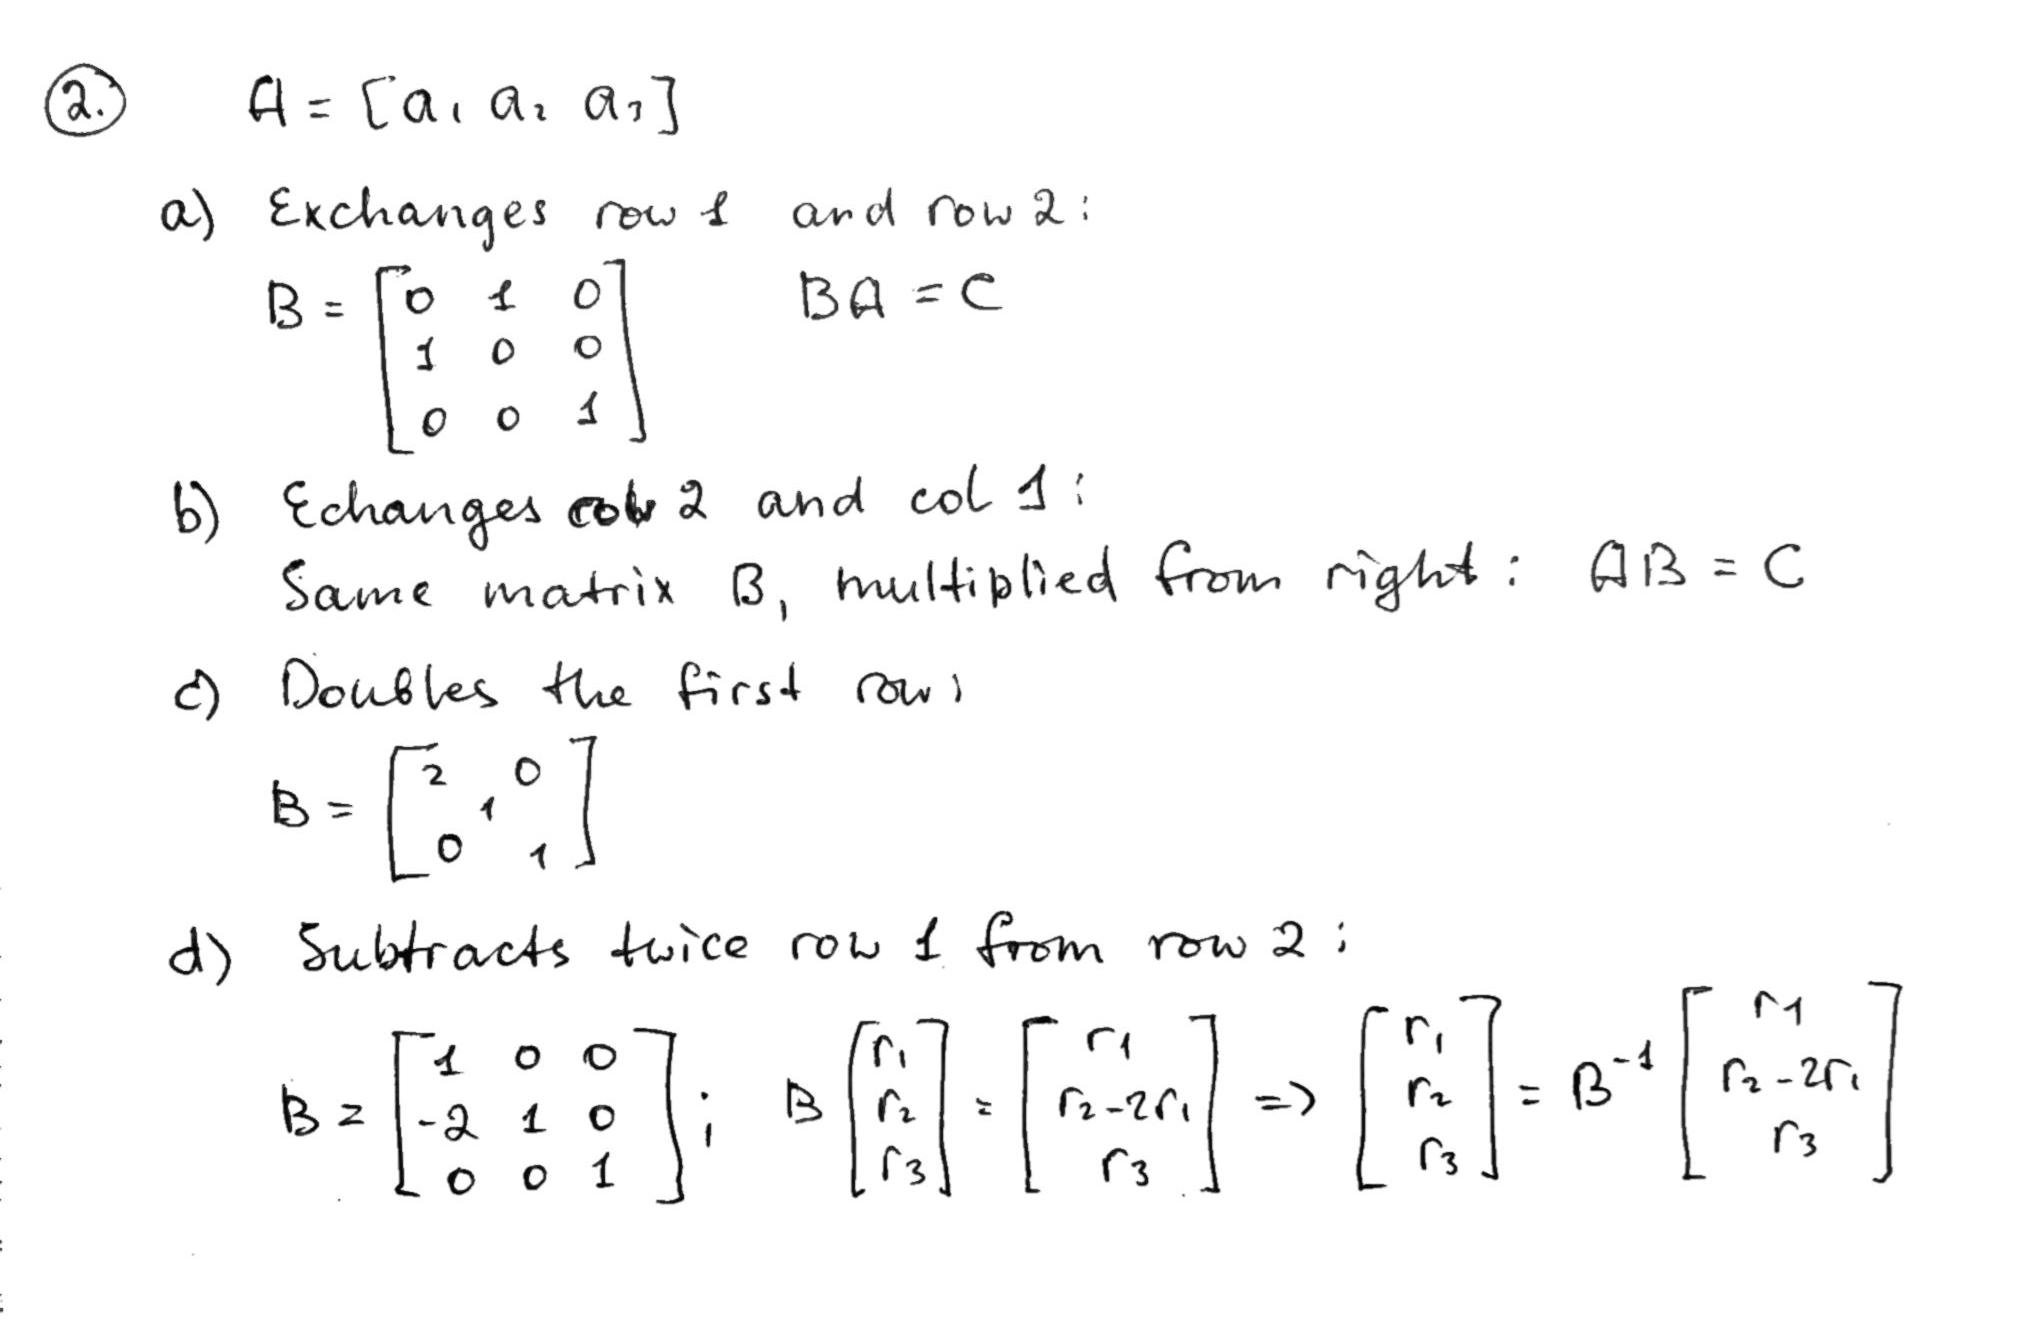 2. A = [a₁ a₂ a₃]
a) Exchanges row 1 and row 2:
B = [0 1 0; 1 0 0; 0 0 1] BA = C
b) Echanges col 2 and col 1:
Same matrix B, multiplied from right: AB = C
c) Doubles the first row:
B = [2 0; 1; 0 1]
d) Subtracts twice row 1 from row 2:
B = [1 0 0; -2 1 0; 0 0 1]; B [r₁; r₂; r₃] = [r₁; r₂-2r₁; r₃] => [r₁; r₂; r₃] = B⁻¹ [r₁; r₂-2r₁; r₃]